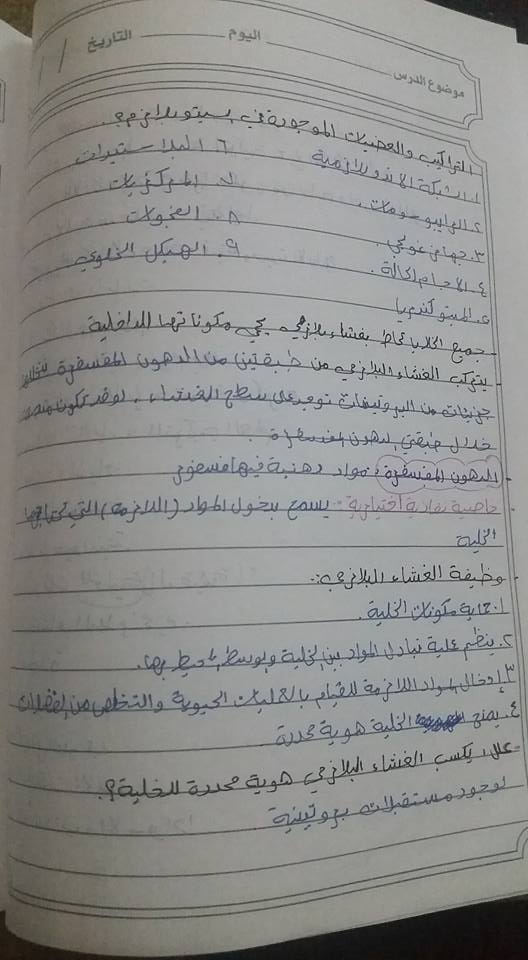 موضوع الدرس اليوم التاريخ / /
التراكيب والعضيات الموجودة في السيتوبلازم؟
١. الشبكة الاندوبلازمية ٦. البلاستيدات
٢. الرايبوسومات. ٧. المريكزات
٣. جهاز غولجي. ٨. الفجوات
٤. الاجسام الحالة. ٩. الهيكل الخلوي
٥. الميتوكندريا
جميع الخلايا تحاط بغشاء بلازمي يحمي مكوناتها الداخلية.
- يتركب الغشاء البلازمي من طبقتين من الدهون المفسفرة
جزيئات من البروتينات توجد على سطح الغشاء، او قد تكون
خلال طبقتي الدهون المفسفرة.
الدهون المفسفرة: مواد دهنية فيها فسفور
خاصية نفاذية اختيارية:- يسمح بدخول المواد (اللازمة) التي تحتاجها
الخلية
وظيفة الغشاء البلازمي:-
١. حماية مكونات الخلية.
٢. ينظم عملية تبادل المواد بين الخلية والوسط المحيط بها.
٣. إدخال المواد اللازمة للقيام بالعمليات الحيوية والتخلص من الفضلات
٤. يمنح الخلية هوية محددة.
علل: يكسب الغشاء البلازمي هوية محددة للخلية؟
لوجود مستقبلات بروتينية